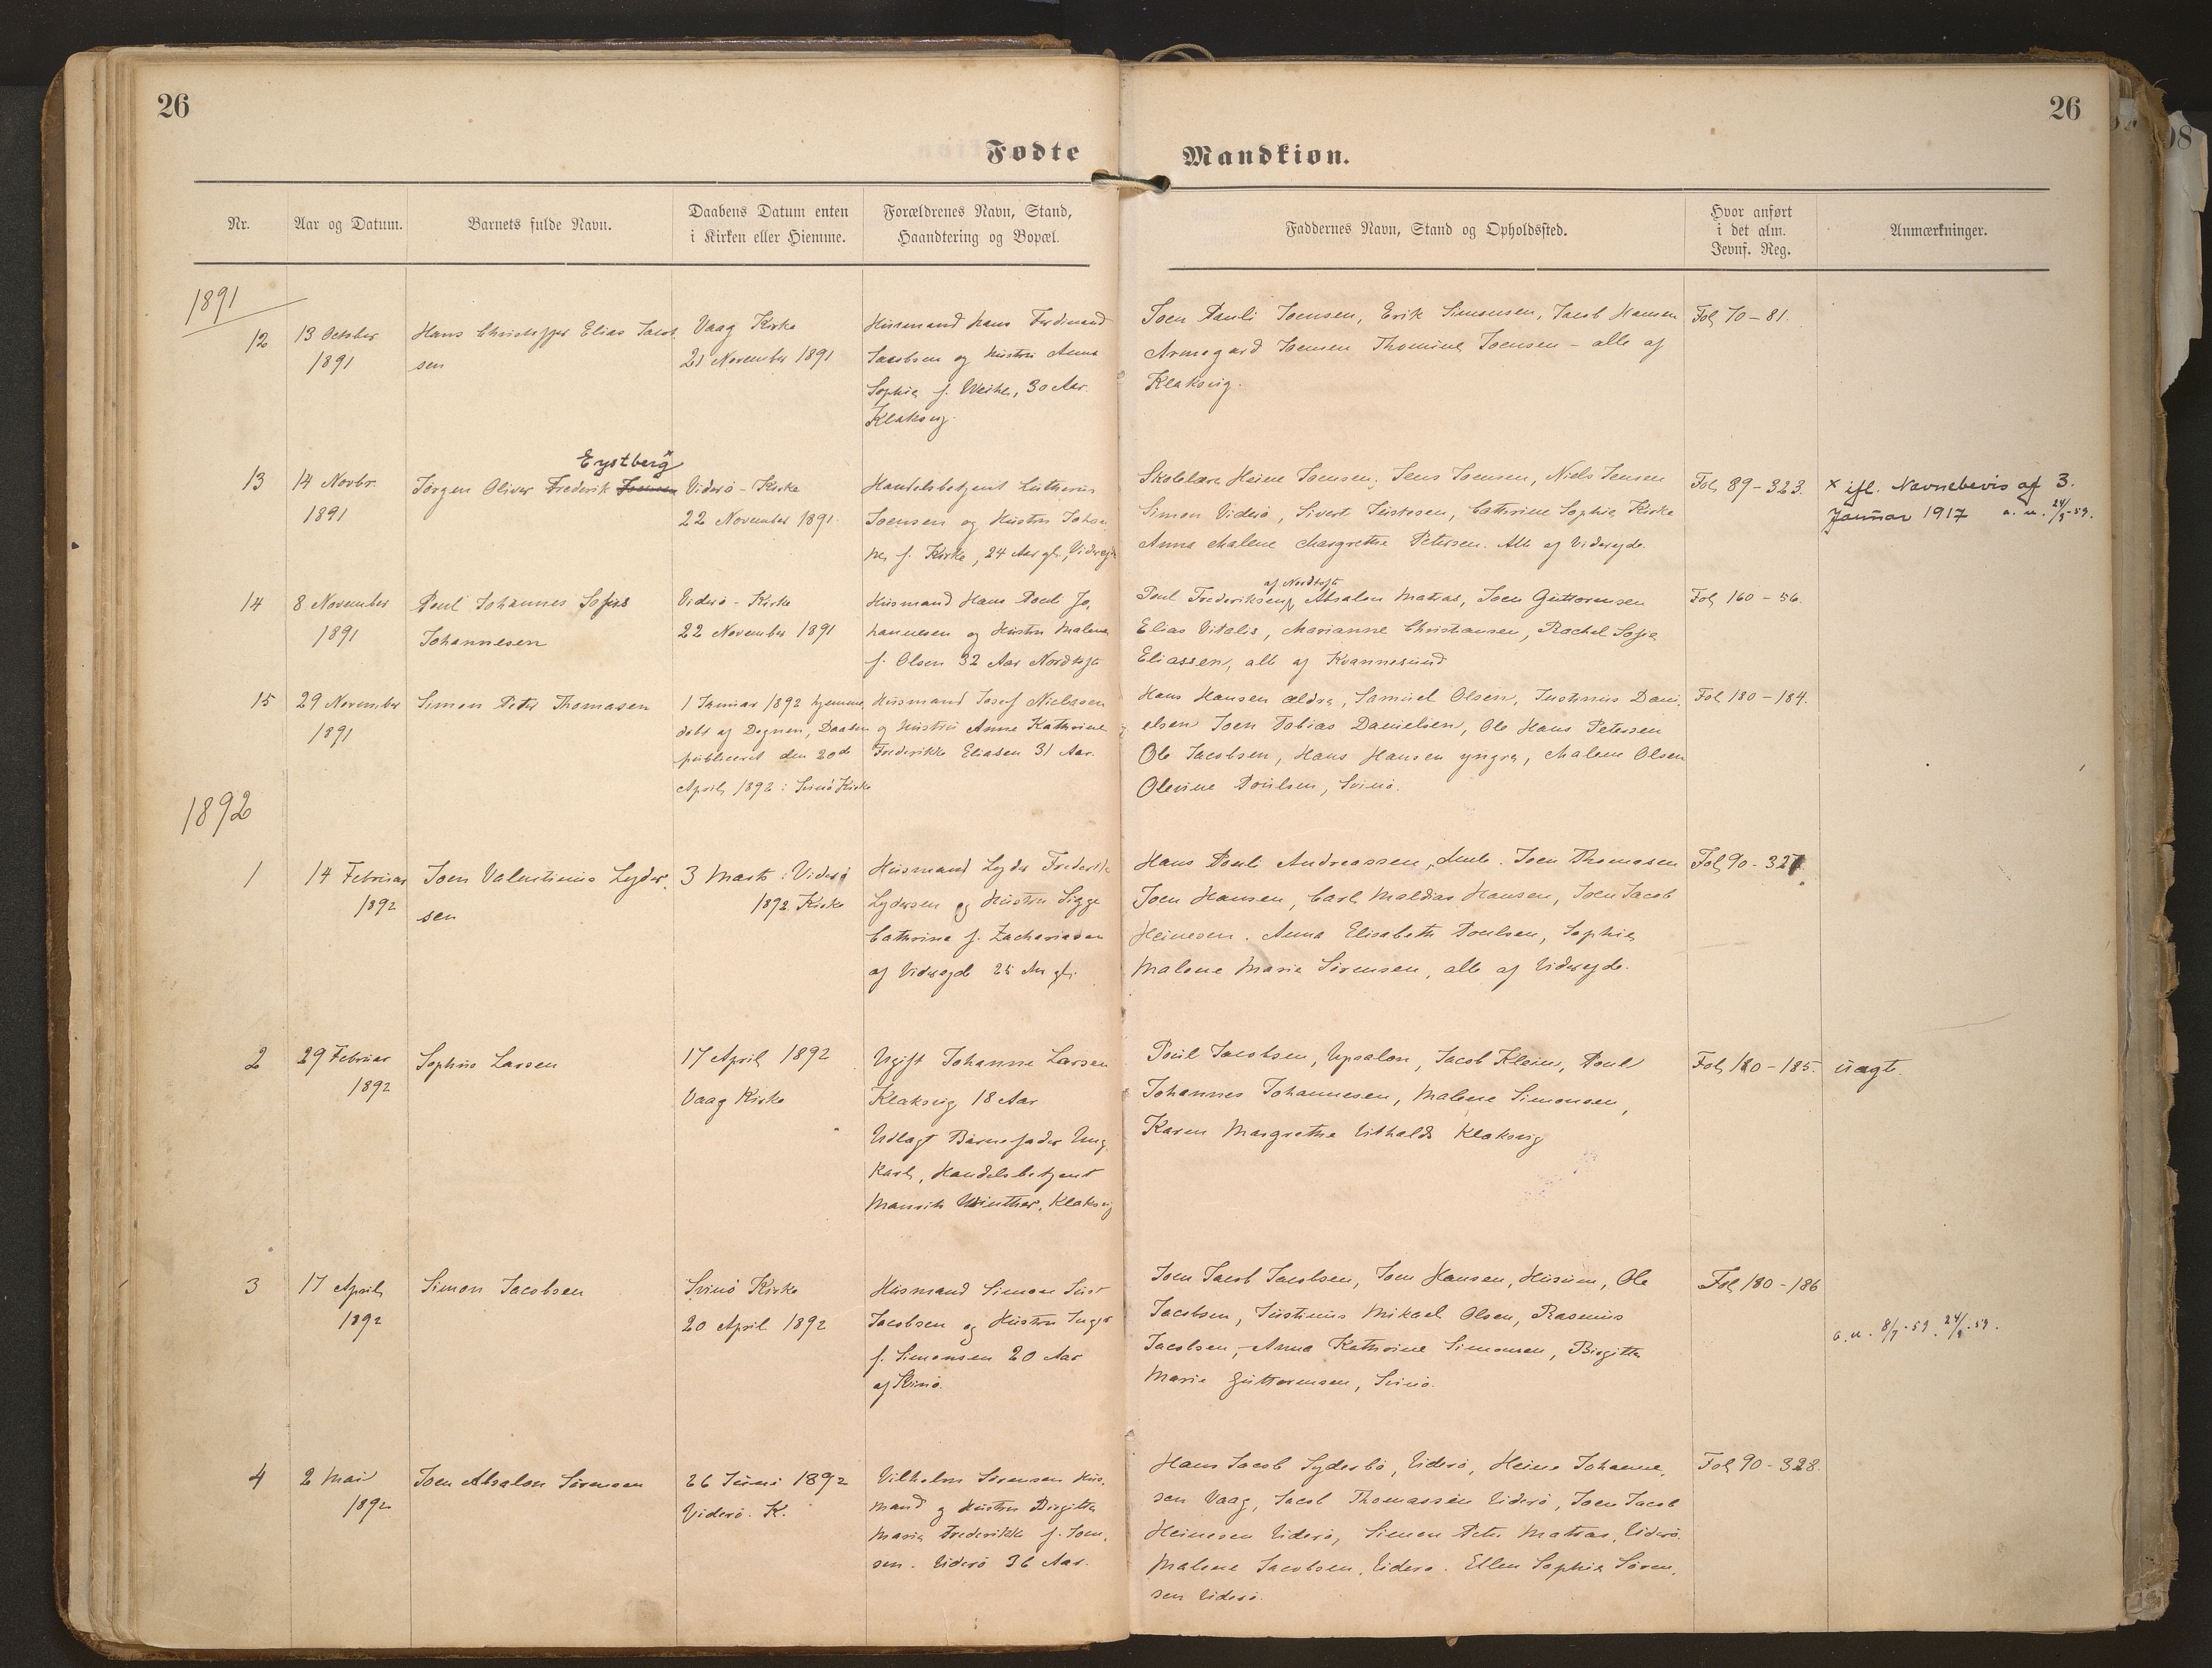 26
26
Fødte
Mandkiøn.
Nr.
Aar og Datum.
Barnets fulde Navn.
Daabens Datum enten
i Kirken eller Hiemme.
Forældrenes Navn, Stand,
Haandtering og Bopæl.
Faddernes Navn, Stand og Opholdssted.
Hvor anført
i det alm.
Jevnf. Reg.
Anmærkninger.
1891
12
13 October
1891
Hans Christoffer Elias Jacob
sen
Vaag Kirke
21 November 1891
Huusmand Hans Ferdinand
Jacobsen og Hustru Anna
Sophie f. Weihe, 30 Aar.
Klaksvig.
Joen Pauli Joensen, Erik Simonsen, Jacob Hansen
Armgard Joensen Thomine Joensen - alle af
Klaksvig.
Fol 70-81.
13
14 Novbr.
1891
Eystberg x
Jørgen Oliver Frederik Joensen
Viderø - Kirke
22 November 1891.
Handelsbetjent Lutherus
Joensen og Hustru Johan
ne f. Kirke, 24 Aar gl., Videreide
Skolelærer Heine Joensen, Jens Joensen, Niels Jensen
Simon Viderø, Sivert Justesen, Cathrine Sophie Kirke
Anna Malene Margrethe Petersen. Alle af Videreyde.
Fol 89-323.
x ifl. Navnebevis af 3.
Januar 1917 a. u. 24/3-59.
14
8 November
1891
Poul Johannes Sofus
Johannesen
Viderø - Kirke
22 November 1891
Huusmand Hans Poul Jo,
hannesen og Hustru Malene
f. Olsen 32 Aar Nordtoft
af Nordtoft
Poul Frederiksen, Absalon Matras, Joen Guttormsen
Elias Vitalis, Marianne Christiansen, Rachel Sofie
Eliassen, alle af Kvannesund
Fol 160-56.
15
29 November
1891
Simon Peter Thomasen
1 Januar 1892 hjemme
døbt af Degnen, Daaben
publiceret den 20de
April 1892 i Svinø Kirke
Huusmand Josef Nielsson
og Hustru Anne Kathrine
Frederikke Eliasen 31 Aar.
Hans Hansen ældre, Samuel Olsen, Justinus Dani,
elsen Joen Tobias Danielsen, Ole Hans Petersen
Ole Jacobsen, Hans Hansen yngre, Malene Olsen
Olevine Poulsen, Svinø.
Fol 180-184.
1892
1
14 Februar
1892
Joen Valentinus Lyder,
sen
3 Marts i Viderø
1892 Kirke
Huusmand Lyder Frederik
Lydersen og Hustru Sigge
Cathrina f. Zachariasen
af Videreyde 25 Aar gl.
Hans Pauli Andreassen, Joen Thomasen
Joen Hansen, Carl Mathias Hansen, Joen Jacob
Heinesen. Anna Elisabeth Poulsen, Sophie
Malene Marie Sørensen, alle af Videreyde.
Fol 90-327
2
29 Februar
1892
Sophus Larsen
17 April 1892
Vaag Kirke
Ugift Johanne Larsen
Klaksvig 18 Aar
Udlagt Barnefader Ung,
karl, Handelsbetjent
Maurits Winther, Klaksvig
Poul Jacobsen, Upsalon, Jacob Klein, Poul
Johannes Johannesen, Malene Simonsen,
Karen Margrethe Vithalds Klaksvig
Fol 180-185.
uægt.
3
17 April
1892
Simon Jacobsen
Svinø Kirke
20 April 1892
Huusmand Simon Just
Jacobsen og Hustru Inger
f. Simonsen 20 Aar
af Svinø
Joen Jacob Jacobsen, Joen Hansen, Husum, Ole
Jacobsen, Justinus Mikael Olsen, Rasmus
Jacobsen, Anna Kathrine Simonsen, Birgitte
Marie Guttormsen, Svinø.
Fol 180-186
a. u. 8/7-59. 24/9-59.
4
2 Mai
1892
Joen Absalon Sørensen
26 Juni 1892
Viderø. K.
Vilhelm Sørensen Huus,
mand og Hustru Birgitte
Marie Frederikke f. Joen,
sen. Viderø 36 Aar.
Hans Jacob Lydersbø, Viderø, Heine Johanne,
sen Vaag, Jacob Thomassen Viderø, Joen Jacob
Heinesen Viderø, Simon Peter Matras, Viderø.
Malene Jacobsen, Viderø. Ellen Sophie Søren,
sen Viderø.
Fol 90-328.